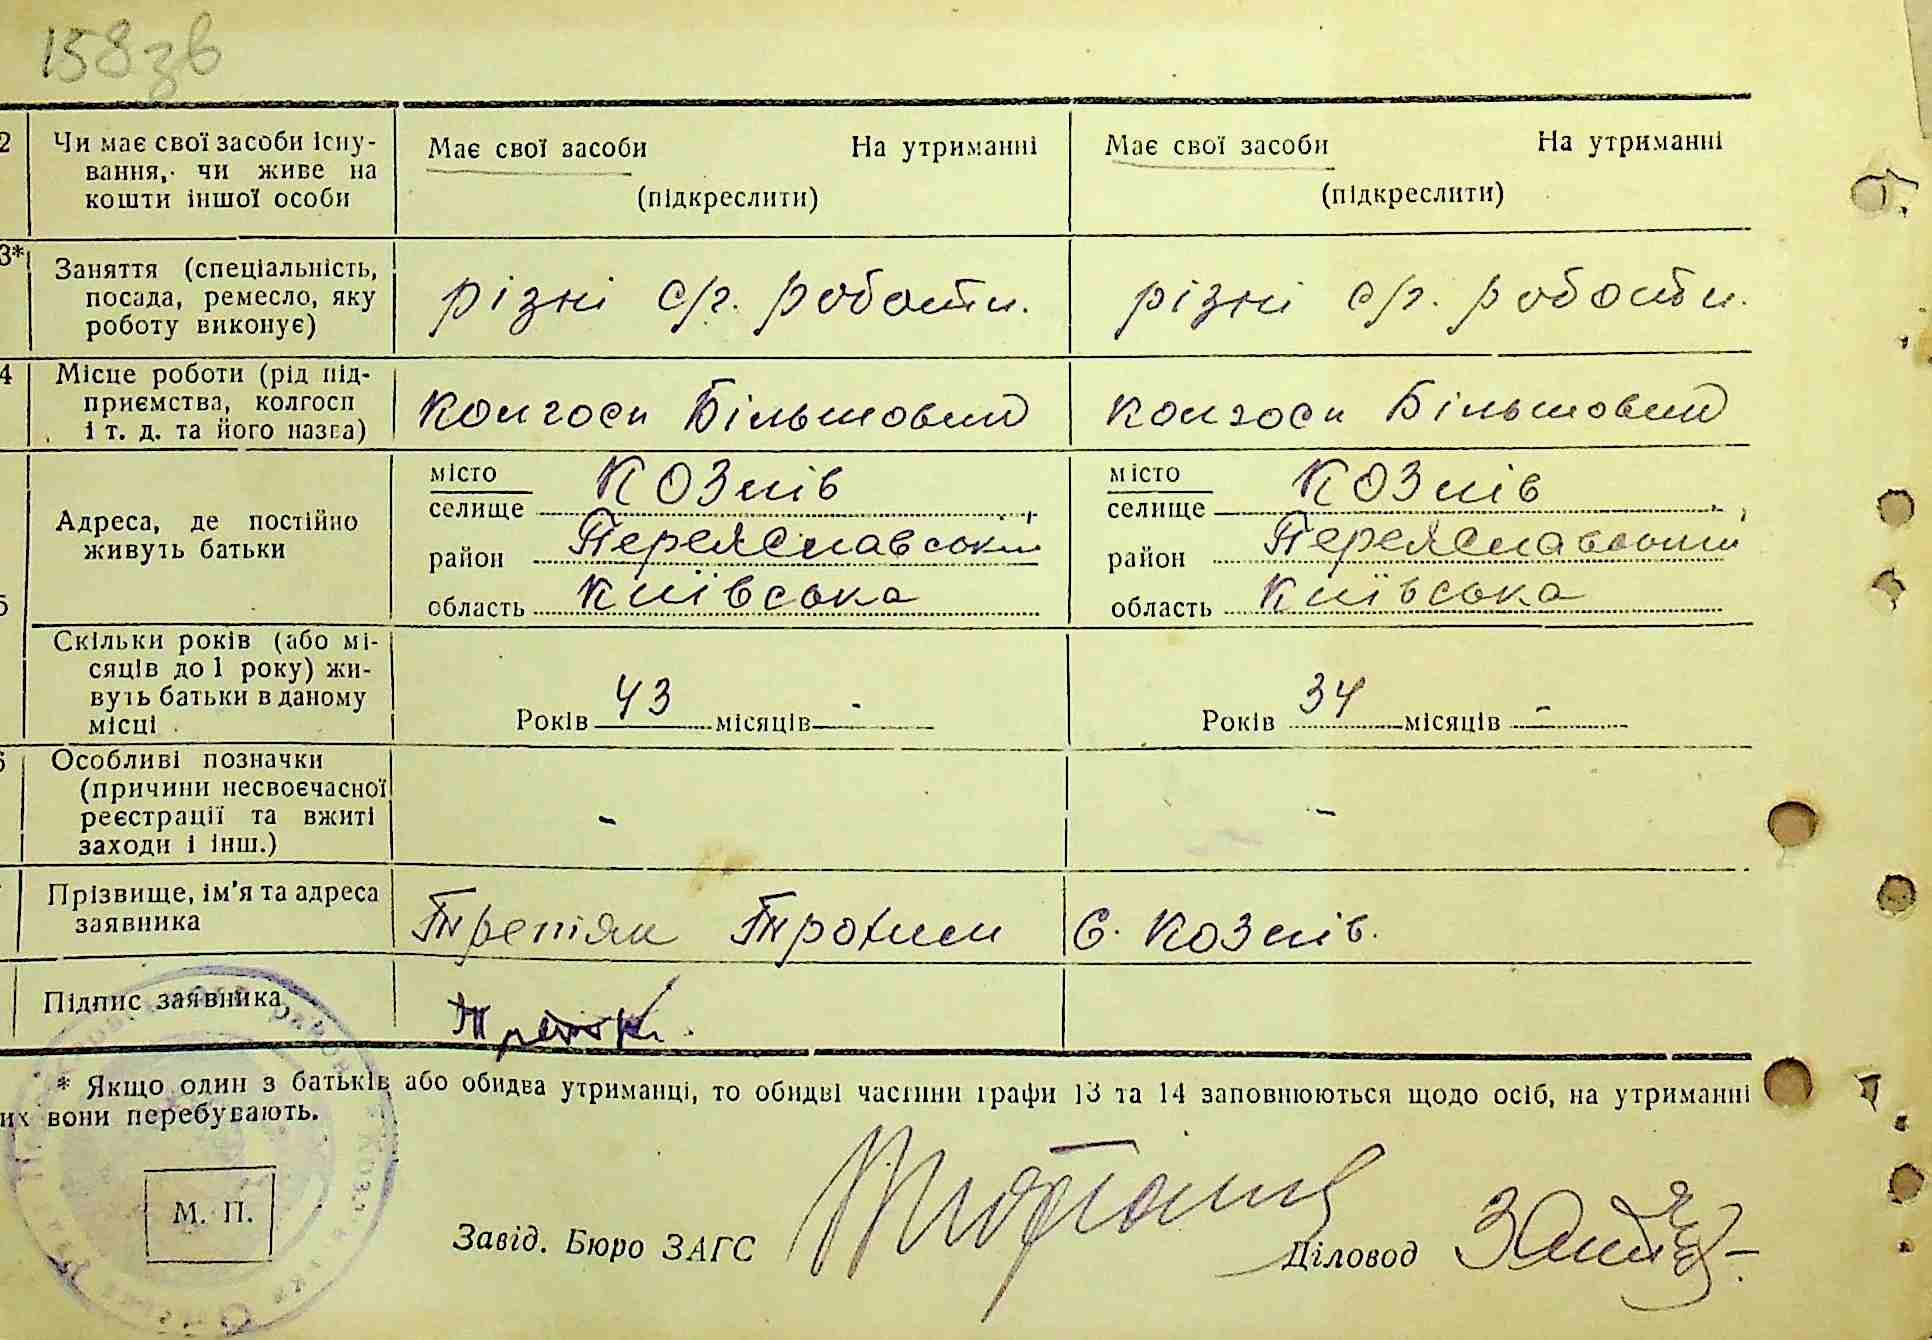 158 зв
2 Чи має свої засоби існу- Має свої засоби На утриманні Має свої засоби На утриманні
вання, чи живе на
кошти іншої особи (підкреслити) (підкреслити)
3* Заняття (спеціальність,
посада, ремесло, яку різні с/г. роботи. різні с/г. роботи.
роботу виконує)
4 Місце роботи (рід під-
приємства, колгосп колгосп Більшовик колгосп Більшовик
і т. д. та його назва)
місто Козлів місто Козлів
селище селище
Адреса, де постійно
живуть батьки район Переяславський район Переяславський
5 область Київська область Київська
Скільки років (або мі-
сяців до 1 року) жи-
вуть батьки в даному
місці Років 43 місяців - Років 34 місяців -
6 Особливі позначки
(причини несвоєчасної
реєстрації та вжиті - -
заходи і інш.)
Прізвище, ім'я та адреса
заявника Третяк Трохим с. Козлів.
Підпис заявника
* Якщо один з батьків або обидва утриманці, то обидві частини графи 13 та 14 заповнюються щодо осіб, на утриманні
их вони перебувають.
М. П.
Завід. Бюро ЗАГС Діловод